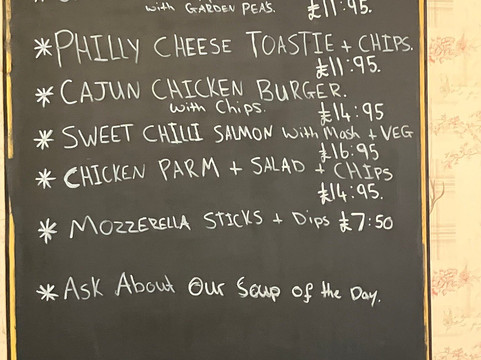 with GARDEN PEAS. £11:95.
*PHILLY CHEESE TOASTIE + CHIPS.
£11:95.
*CAJUN CHICKEN BURGER.
with Chips. £14:95
*SWEET CHILLI SALMON with Mash + VEG
£16:95
*CHICKEN PARM + SALAD + CHIPS
£14:95.
*MOZZERELLA STICKS + Dips £7:50
*Ask About Our Soup of the Day.